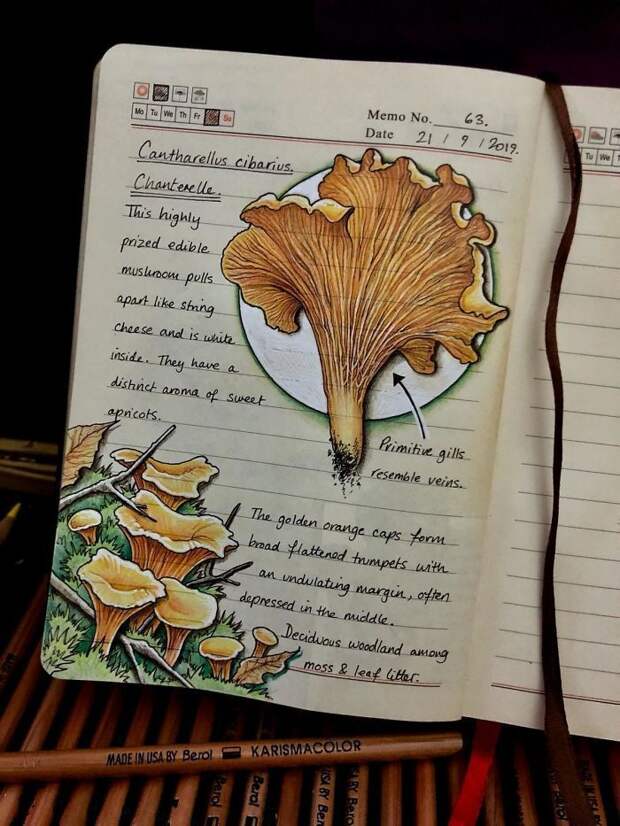 Mo Tu We Th Fr Su
Memo No. 63.
Date 21 / 9 / 2019.
Cantharellus cibarius.
Chanterelle.
This highly
prized edible
mushroom pulls
apart like string
cheese and is white
inside. They have a
distinct aroma of sweet
apricots.
Primitive gills
resemble veins.
The golden orange caps form
broad flattened trumpets with
an undulating margin, often
depressed in the middle.
Deciduous woodland among
moss & leaf litter.
Mo Tu We
MADE IN USA BY Berol KARISMACOLOR